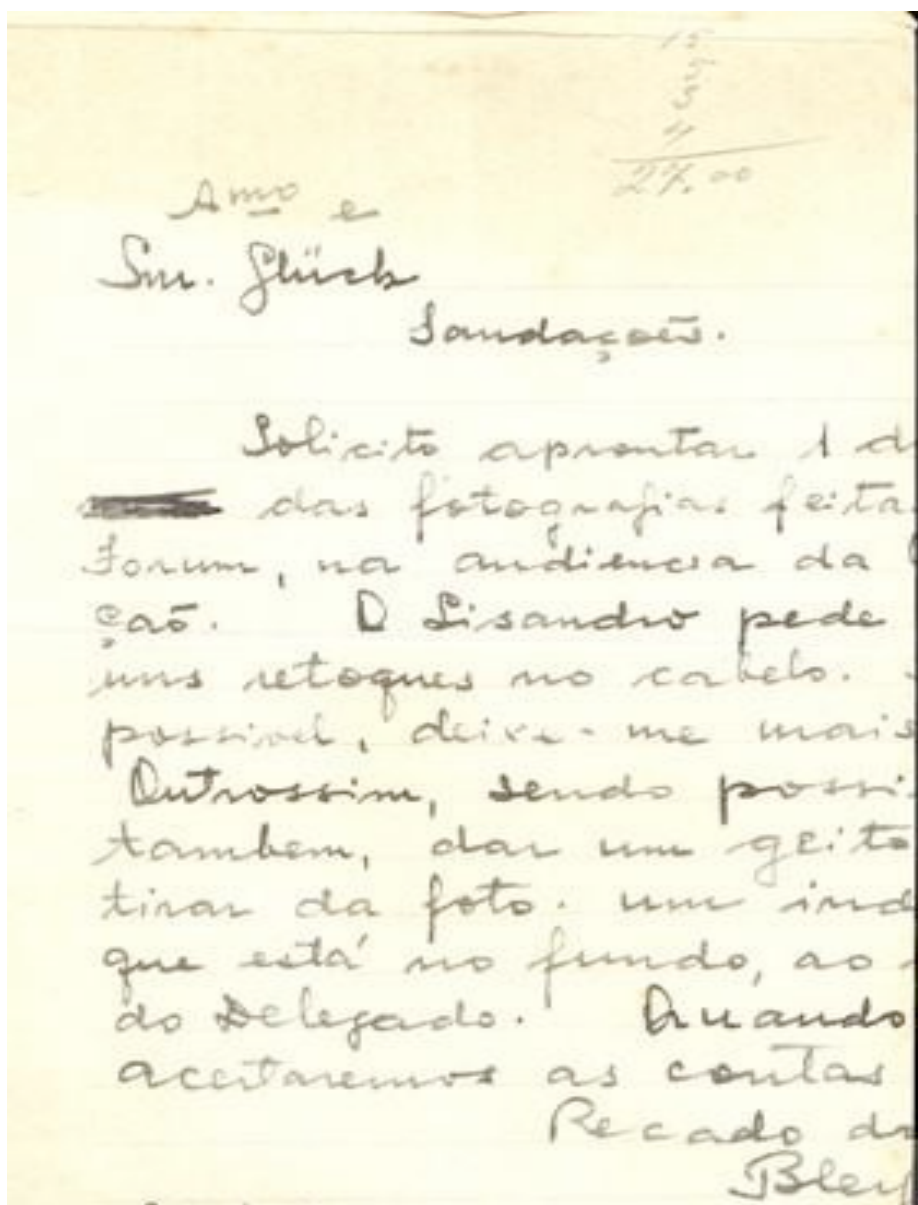 15
5
3
4
27.00
Amo e
Snr. Glück
Saudações.
Solicito aprontar 1 d
das fotografias feita
Forum, na audiencia da
ção. O Lisandro pede
uns retoques no cabelo.
possivel, deixe-me mais
Outrossim, sendo possi
tambem, dar um geito
tirar da foto. um ind
que está no fundo, ao
do Delegado. Quando
acertaremos as contas
Recado do
Bley